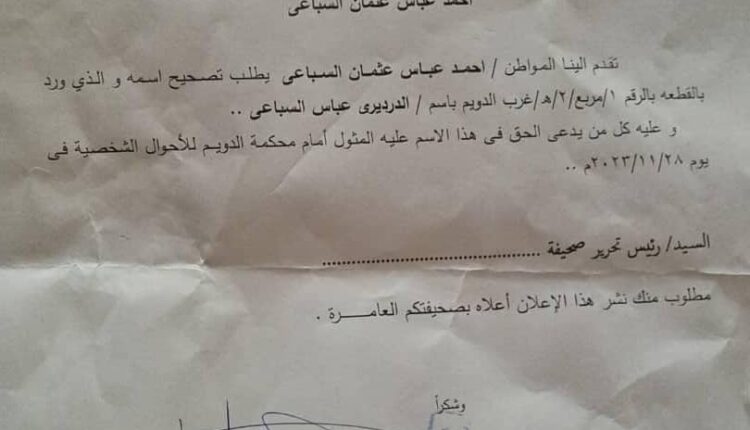 احمد عباس عثمان السباعى
تقدم الينا المواطن / احمد عباس عثمان السباعى يطلب تصحيح اسمه و الذي ورد
بالقطعه بالرقم ١/مربع/٢/هـ/غرب الدويم باسم / الدرديرى عباس السباعى ..
و عليه كل من يدعى الحق فى هذا الاسم عليه المثول أمام محكمة الدويم للأحوال الشخصية فى
يوم ٢٠٢٣/١١/٢٨م ..
السيد/ رئيس تحرير صحيفة ........................................
مطلوب منك نشر هذا الإعلان أعلاه بصحيفتكم العامـــــرة .
وشكراً